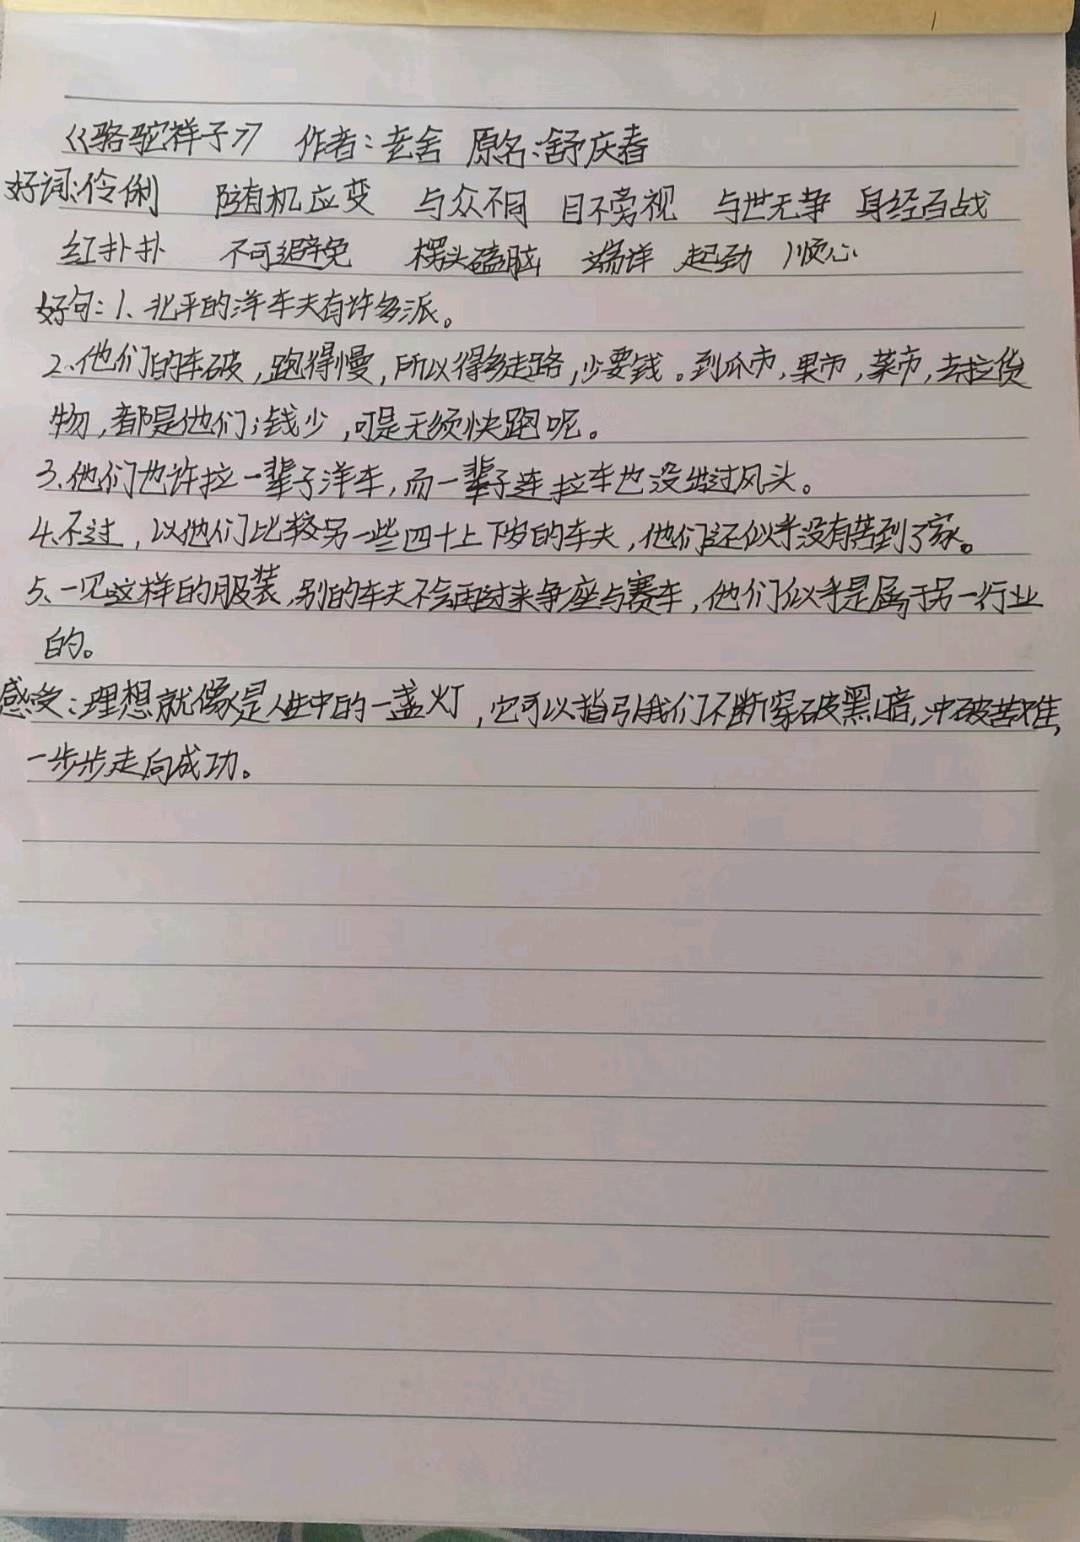 《骆驼祥子》 作者:老舍 原名:舒庆春
好词:伶俐 随机应变 与众不同 目不旁视 与世无争 身经百战
红扑扑 不可避免 楞头磕脑 端详 起劲 顺心
好句:1、北平的洋车夫有许多派。
2、他们的车破,跑得慢,所以得多走路,少要钱。到瓜市,果市,菜市,去拉货
物,都是他们;钱少,可是无须快跑呢。
3、他们也许拉一辈子洋车,而一辈子连拉车也没出过风头。
4、不过,以他们比较另一些四十上下岁的车夫,他们还似乎没有苦到了家。
5、一见这样的服装,别的车夫不会再过来争座与赛车,他们似乎是属于另一行业
的。
感受:理想就像是人生中的一盏灯,它可以指引我们不断穿破黑暗,冲破苦难,
一步步走向成功。